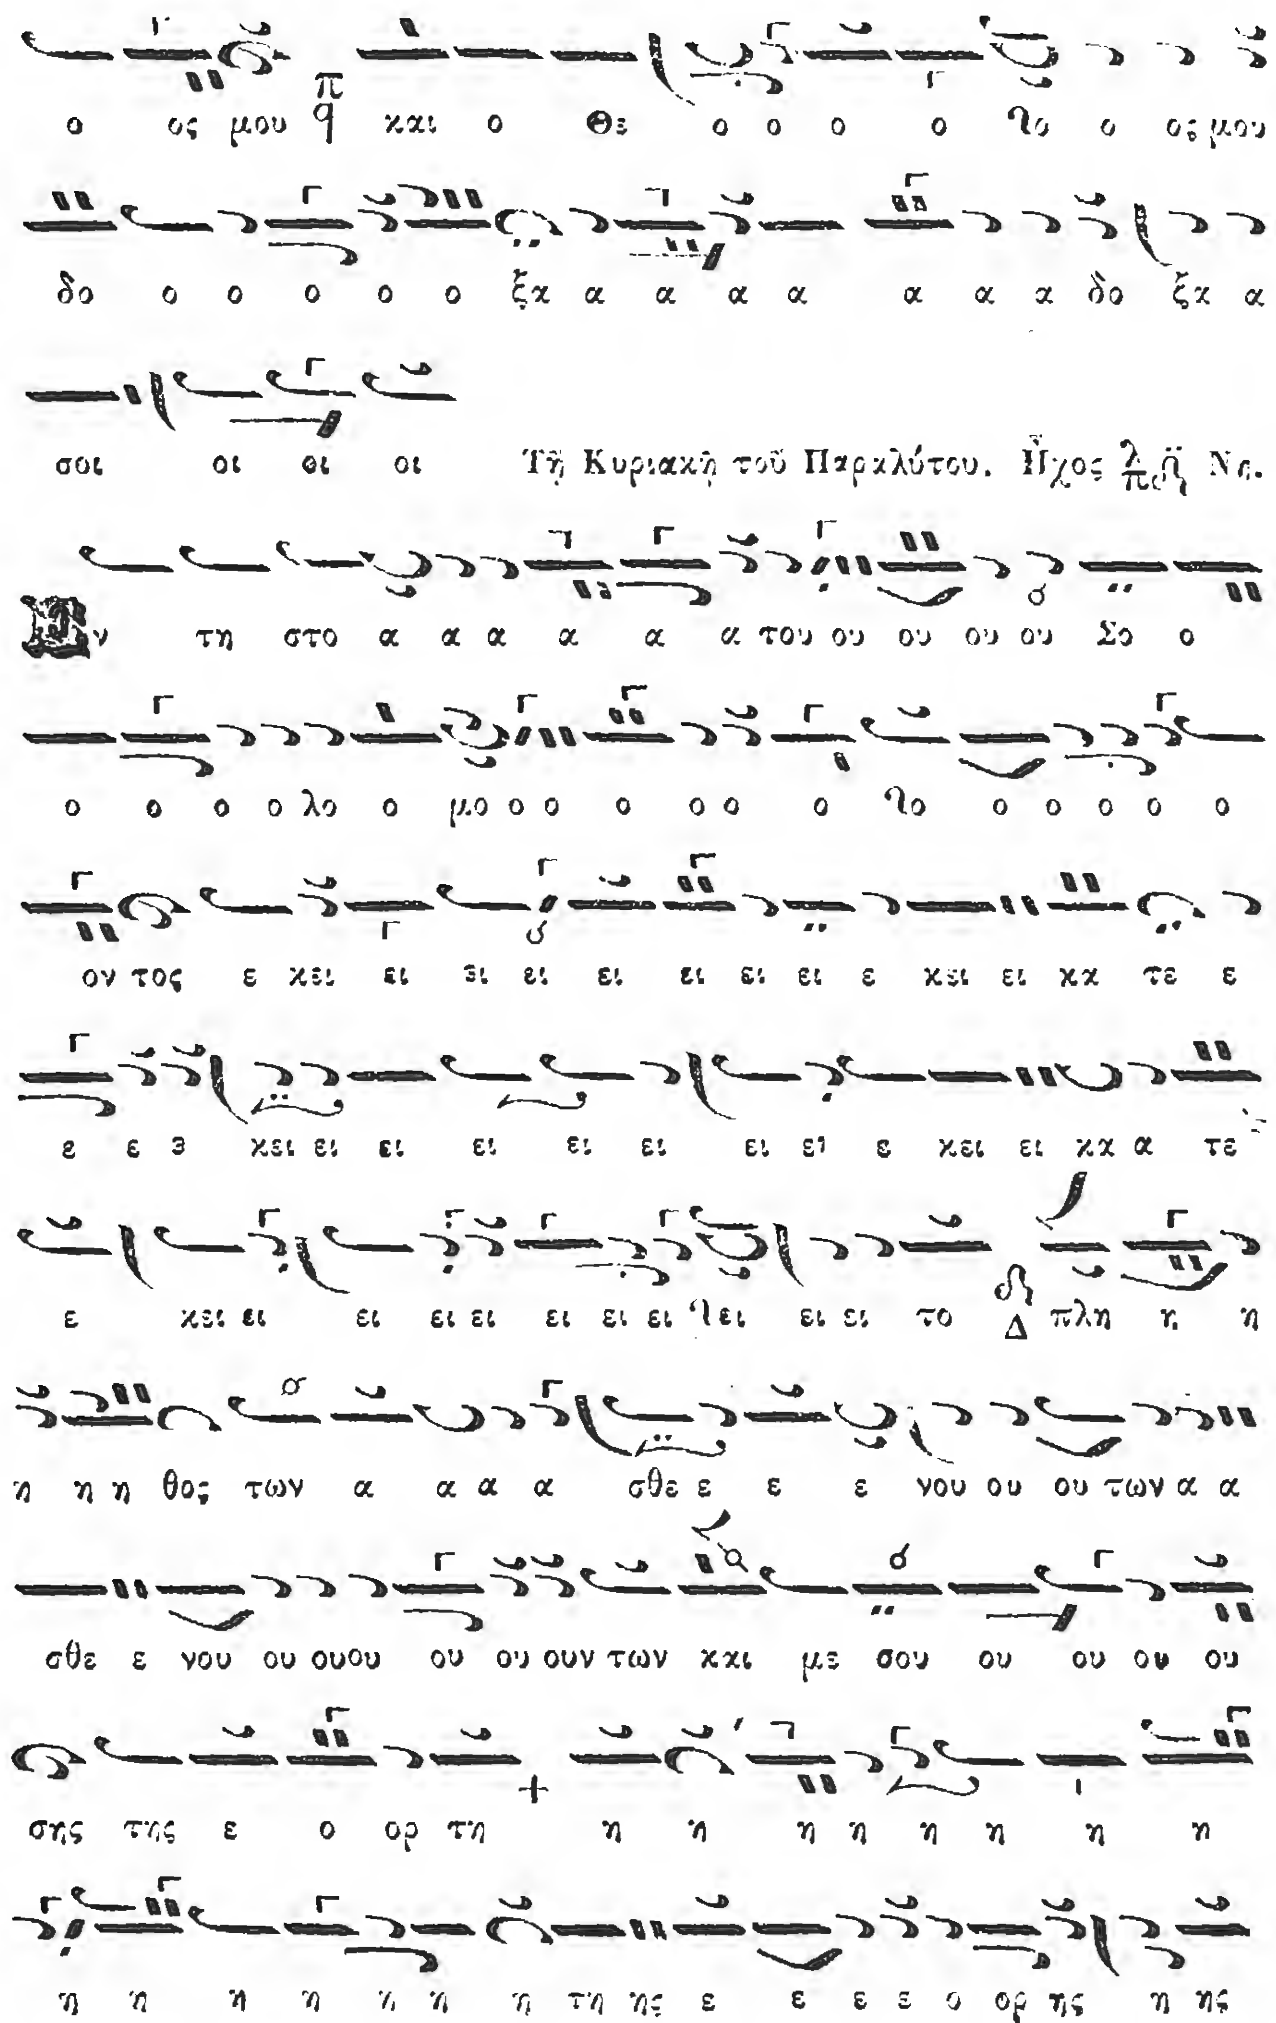 ο ος μου π q και ο Θε ο ο ο ο λο ο ος μου
δο ο ο ο ο ο ξα α α α α α α α δο ξα α
σοι οι οι οι Τῇ Κυριακῇ τοῦ Παραλύτου. Ἦχος λ π Νη.
Εν τη στο α α α α α α του ου ου ου ου Σο ο
ο ο ο ο λο ο μο ο ο ο ο ο ο λο ο ο ο ο ο
ον τος ε κει ει ει ει ει ει ει ει ε κει ει κα τε ε
ε ε ε κει ει ει ει ει ει ει ει ε κει ει κα α τε
ε κει ει ει ει ει ει ει ει λει ει ει το Δ πλη η η
η η η θος των α α α α σθε ε ε ε νου ου ου των α α
σθε ε νου ου ουου ου ου ουν των και με σου ου ου ου ου
σης της ε ο ορ τη η η η η η η η η
η η η η η η η τη ης ε ε ε ε ο ορ ης η ης